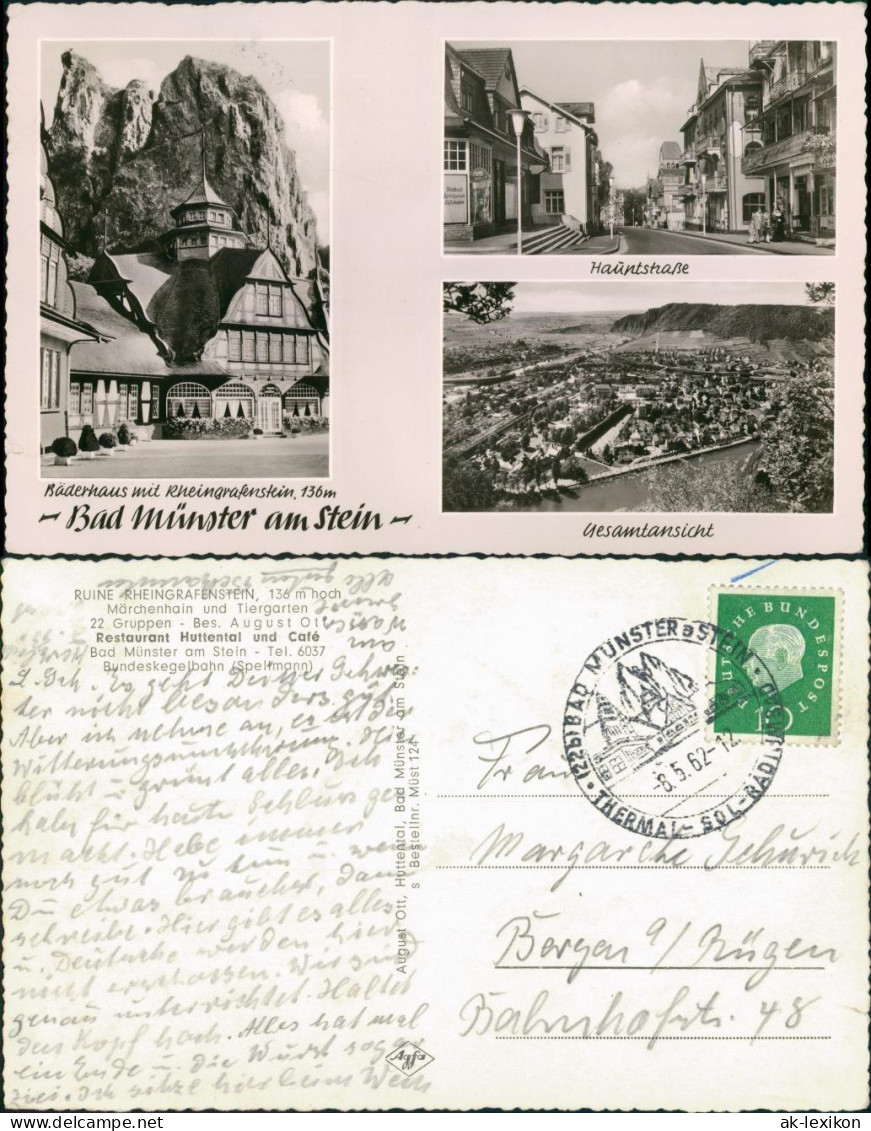 Bäderhaus mit Rheingrafenstein, 136m
- Bad Münster am Stein -
Hauptstraße
Gesamtansicht
RUINE RHEINGRAFENSTEIN, 136 m hoch
Märchenhain und Tiergarten
22 Gruppen - Bes. August Ott
Restaurant Huttental und Café
Bad Münster am Stein - Tel. 6037
Bundeskegelbahn (Spellmann)
Es geht Deiner Schwes-
ter nicht besonders gut
Aber ich nehme an, es ist der
Witterungsumschwung. Hier
blüht u. grünt alles. Ich
habe für heute Schluss ge-
macht. Habe immer
noch gut zu tun u. wenn
Du etwas brauchst, dann
schreibe. Hier gibt es alles
u. Deutsche werden hier
nicht erschossen. Wir sind
genau unterrichtet. Haltet
den Kopf hoch. Alles hat mal
ein Ende u. die Wurst sogar
zwei. Ich sitze hier beim Wein
August Ott, Huttental, Bad Münster am Stein
s Bestellnr. Müst 124
Agfa
(22b) BAD MÜNSTER a STEIN
THERMAL-SOL-RADIUMBAD
-8.5.62-12
DEUTSCHE BUNDESPOST
10
Frau
Margarete Schurich
Bergen a/ Rügen
Bahnhofstr. 48
ak-lexikon